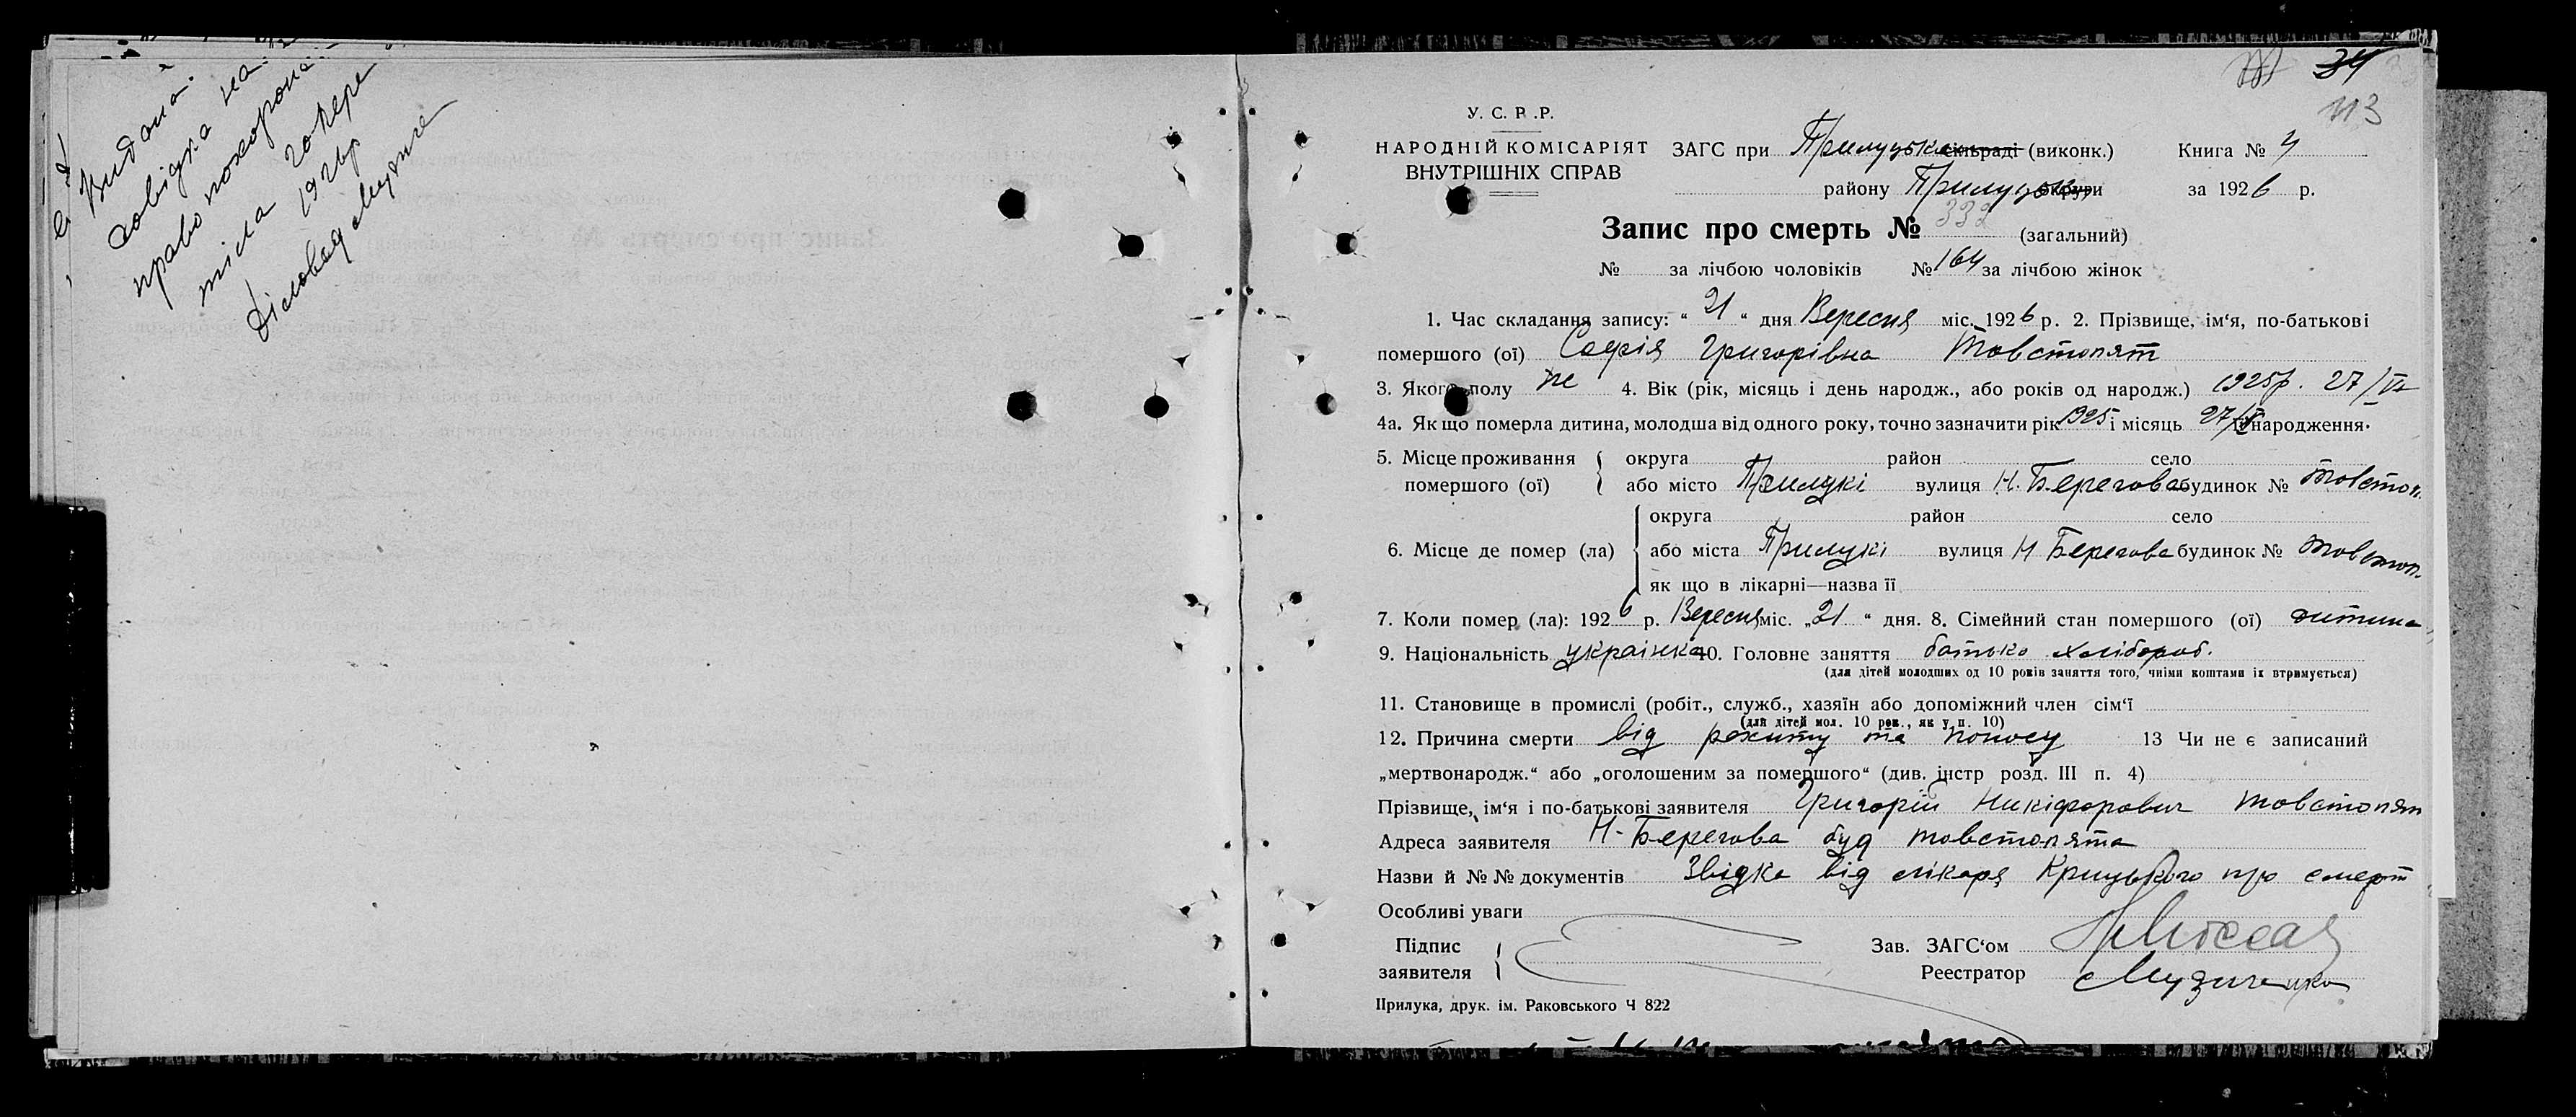 Видана
довідка на
право похорона
тіла
192 р
Діловод Музиче
34
113
У. С. Р. Р.
НАРОДНІЙ КОМІСАРІЯТ
ВНУТРІШНІХ СПРАВ
ЗАГС при Прилуцькім сільраді (виконк.) Книга № 4
району Прилуцької округи за 1926 р.
Запис про смерть № 332 (загальний)
№ за лічбою чоловіків № 164 за лічбою жінок
1. Час складання запису: “ 21 “ дня Вересня міс. 1926 р. 2. Прізвище, ім‘я, по-батькові
помершого (ої) Софія Григорівна Товстопят
3. Якого полу же 4. Вік (рік, місяць і день народж., або років од народж.) 1925р. 27/ІХ
4а. Як що померла дитина, молодша від одного року, точно зазначити рік 1925 і місяць 27/ІХ народження.
5. Місце проживання округа район село
помершого (ої) або місто Прилукі вулиця Н. Берегова будинок № Товстоп.
округа район село
6. Місце де помер (ла) або міста Прилукі вулиця Н Берегова будинок № Товстоп.
як що в лікарні—назва її
7. Коли помер (ла): 1926 р. Вересня міс. „21 “ дня. 8. Сімейний стан помершого (ої) дитина
9. Національність українка 10. Головне заняття батько хлібороб.
(для дітей молодших од 10 років заняття того, чиїми коштами їх втримується)
11. Становище в промислі (робіт., служб., хазяїн або допоміжний член сім‘ї
(для дітей мол. 10 рок., як у п. 10)
12. Причина смерти від рахиту та поносу 13 Чи не є записаний
„мертвонародж.“ або „оголошеним за помершого“ (див. інстр розд. III п. 4)
Прізвище, ім‘я і по-батькові заявителя Григорій Никіфорович Товстопят
Адреса заявителя Н-Берегова буд Товстопята
Назви й № № документів Звідка від лікаря Крицького про смерт
Особливі уваги
Підпис
заявителя
Зав. ЗАГС‘ом
Реестратор Музиченко
Прилука, друк. ім. Раковського Ч 822